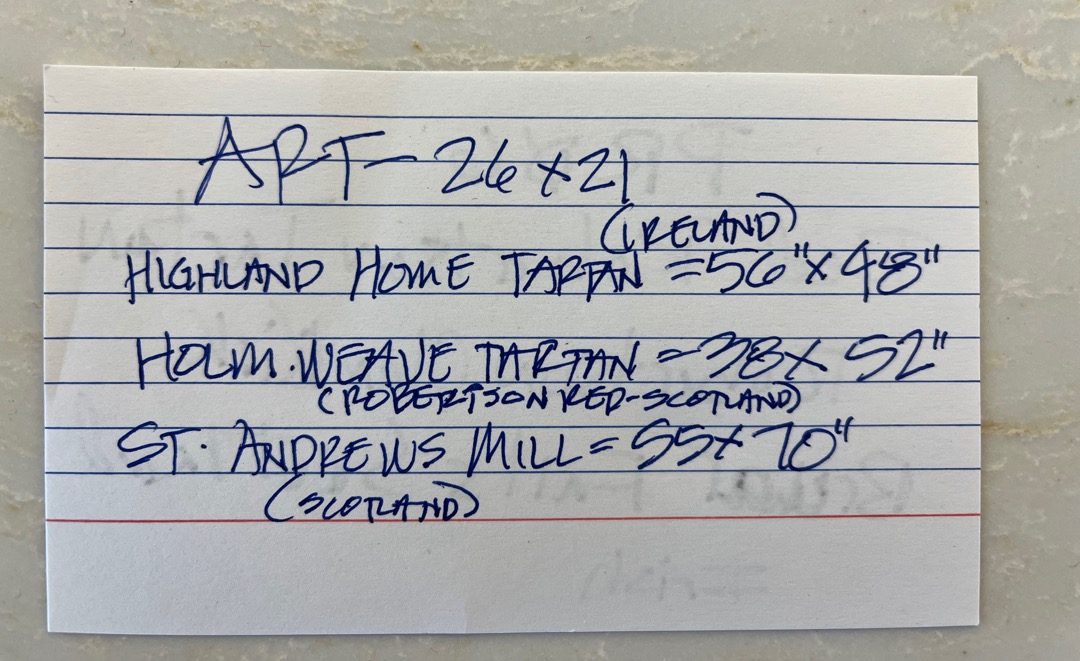 ART - 26 x 21
(IRELAND)
HIGHLAND HOME TARTAN = 56" x 48"
HOLM. WEAVE TARTAN = 38 x 52"
(ROBERTSON RED - SCOTLAND)
ST. ANDREWS MILL = 55 x 70"
(SCOTLAND)